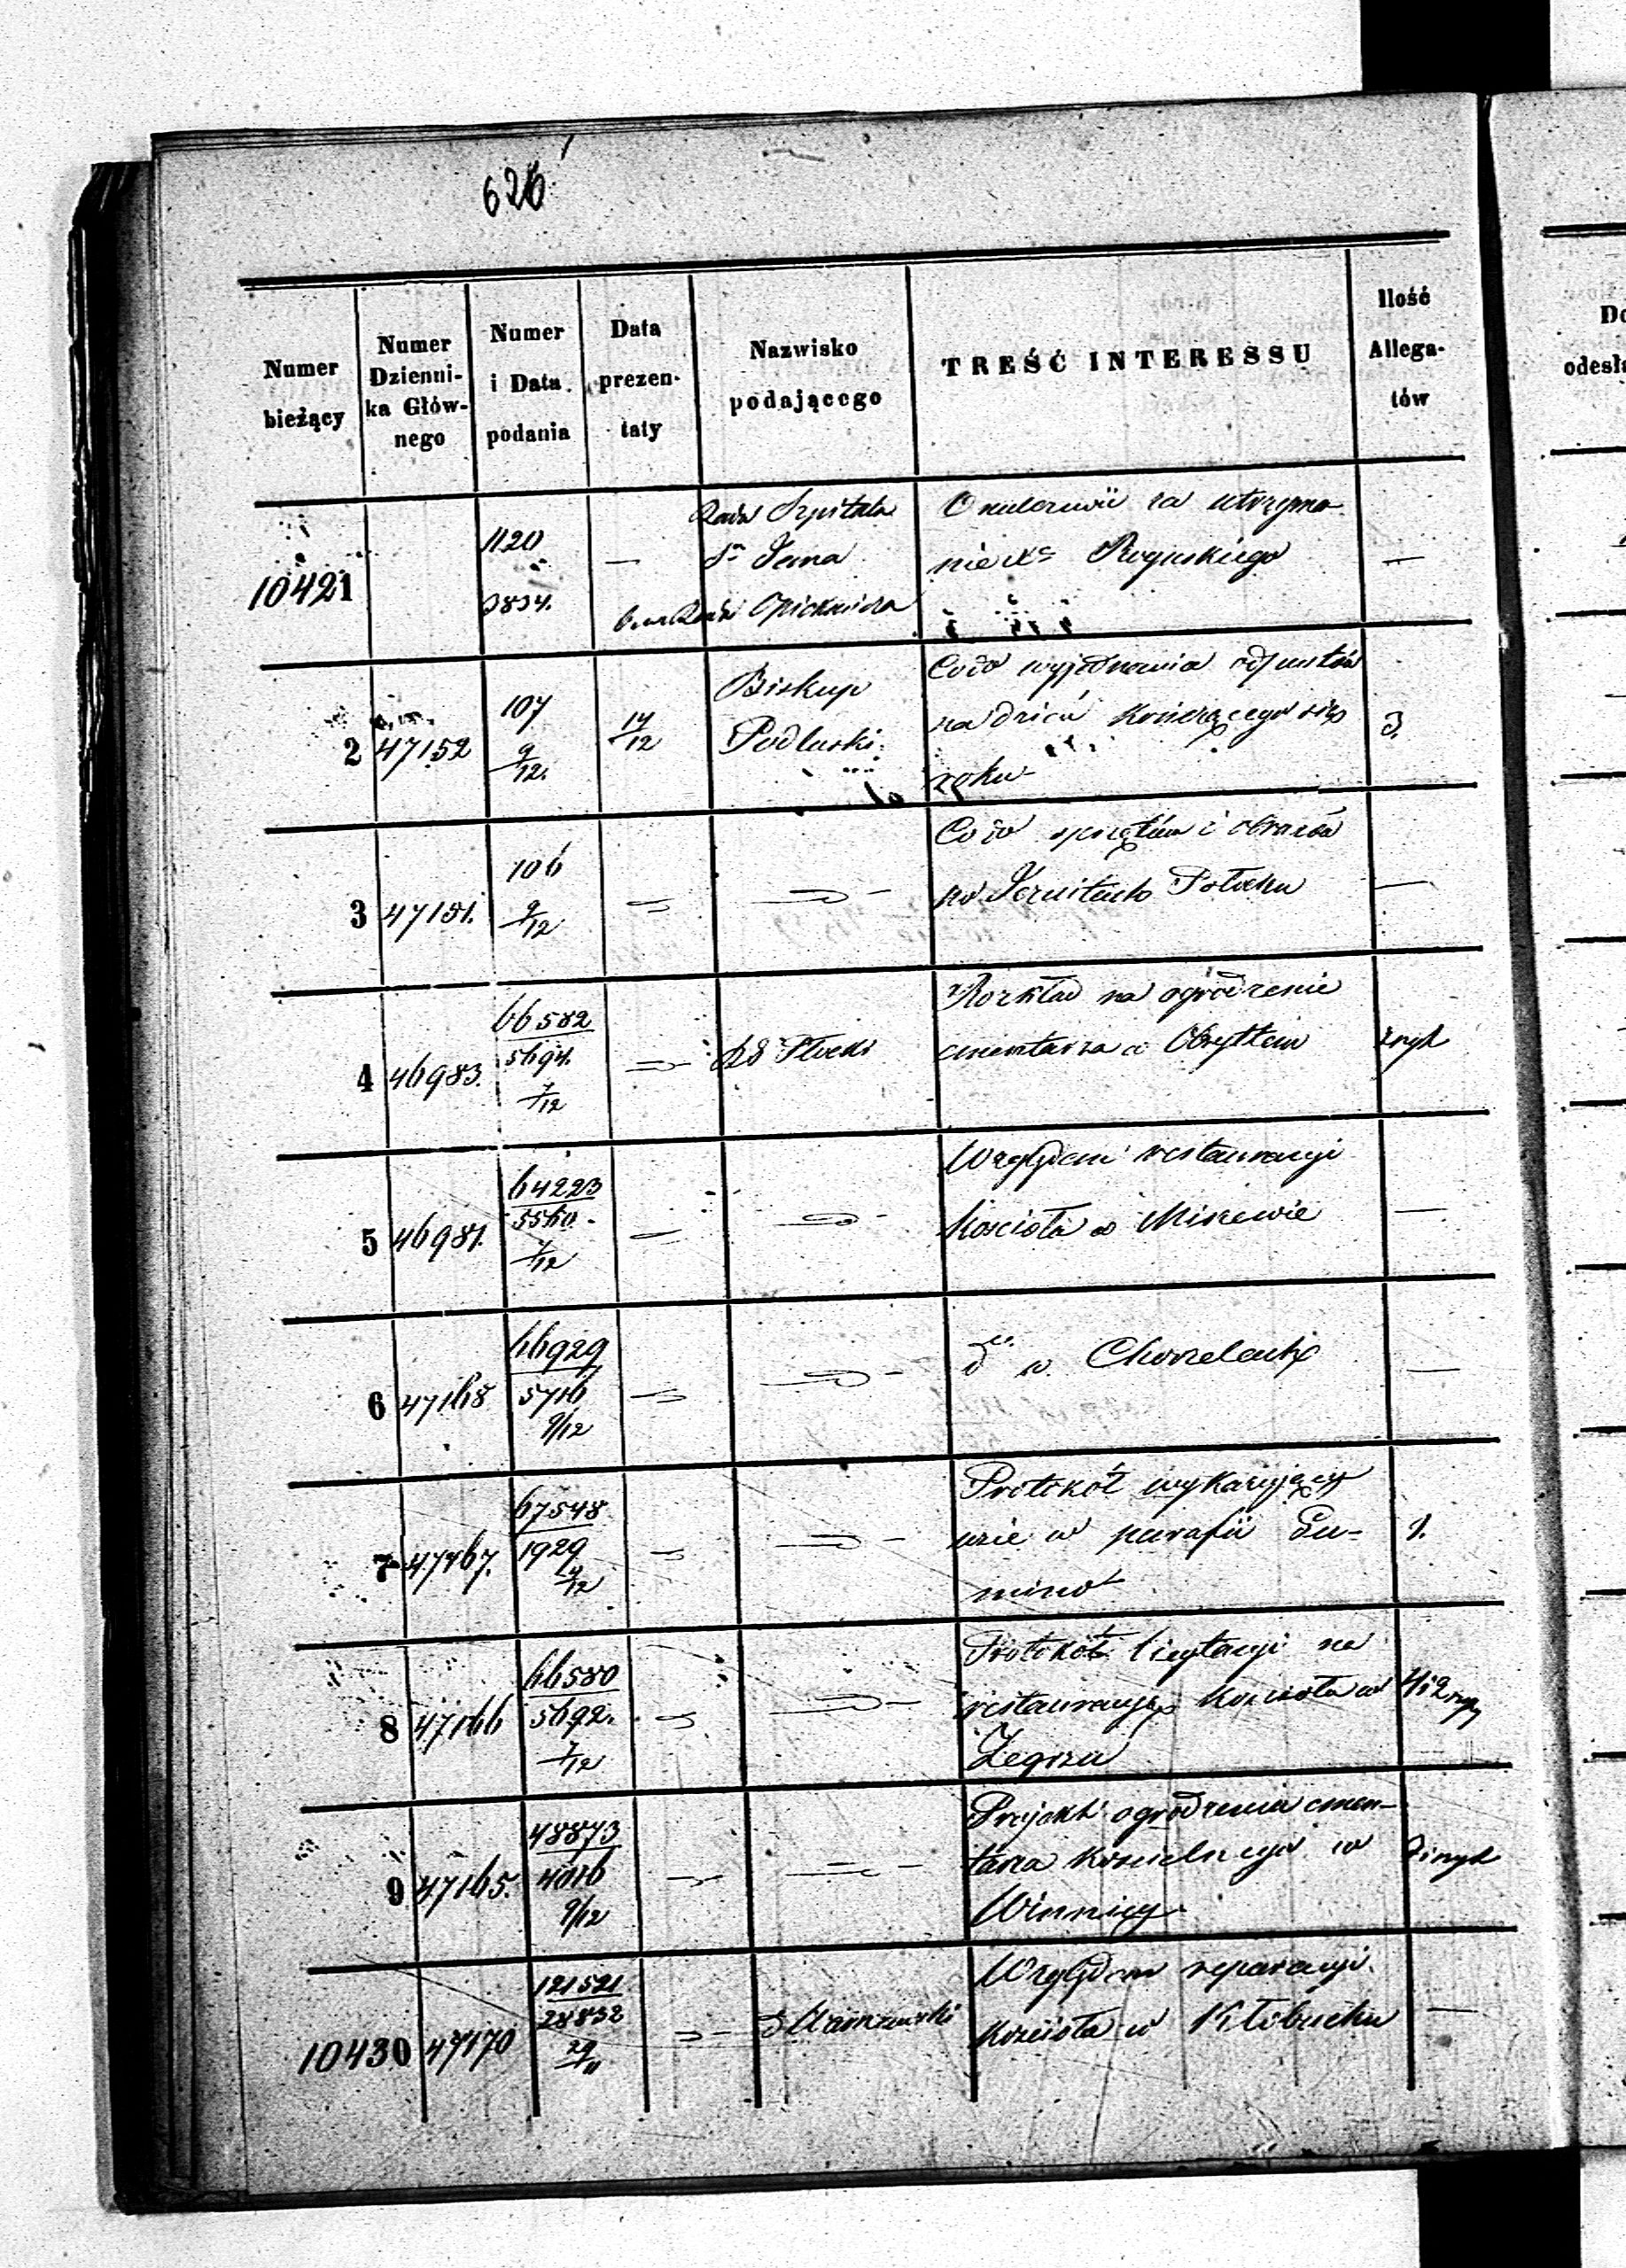 626
Numer bieżący
Numer Dzienni-ka Głów-nego
Numer i Data podania
Data prezen-taty
Nazwisko podającego
TREŚĆ INTERESSU
Ilość Allega-tów
10421
1120
3834.
—
Rada Szpitala
Sgo Jana
Opiekuńcza
O należność za utrzyma
nie Xs Roguskiego
—
2
47152
107
9/12.
14/12
Biskup
Podlaski
Co do wyjednania odpustów
na dzień kończącego się
roku
3.
3
47151.
106
9/12
Co do sprzętów i obrazów
po Jezuitach Połocku
—
4
46983.
66582
5694.
7/12
RG Płocki
Rozkład na ogrodzenie
cmentarza w Obrytem
5
46981.
64223
5560.
7/12
—
Względem restauracyi
kościoła w Miszewie
—
6
47168
66929
5716
9/12
do w Chorzelach
—
7
47167.
67548
1929
Protokół wykazujący
w parafii Du-
ninow
1.
8
47166
66580
5692.
7/12
Protokół licytacyi na
restauracyę kościoła w
Zegrzu
9
47165.
48873
4016
9/12
Projekt ogrodzenia cmen-
tarza kościelnego w
Winnicy
10430
47170
121521
28832
29/11
Względem reparacyi
kościoła w Kłobucku
—
Do
odesła